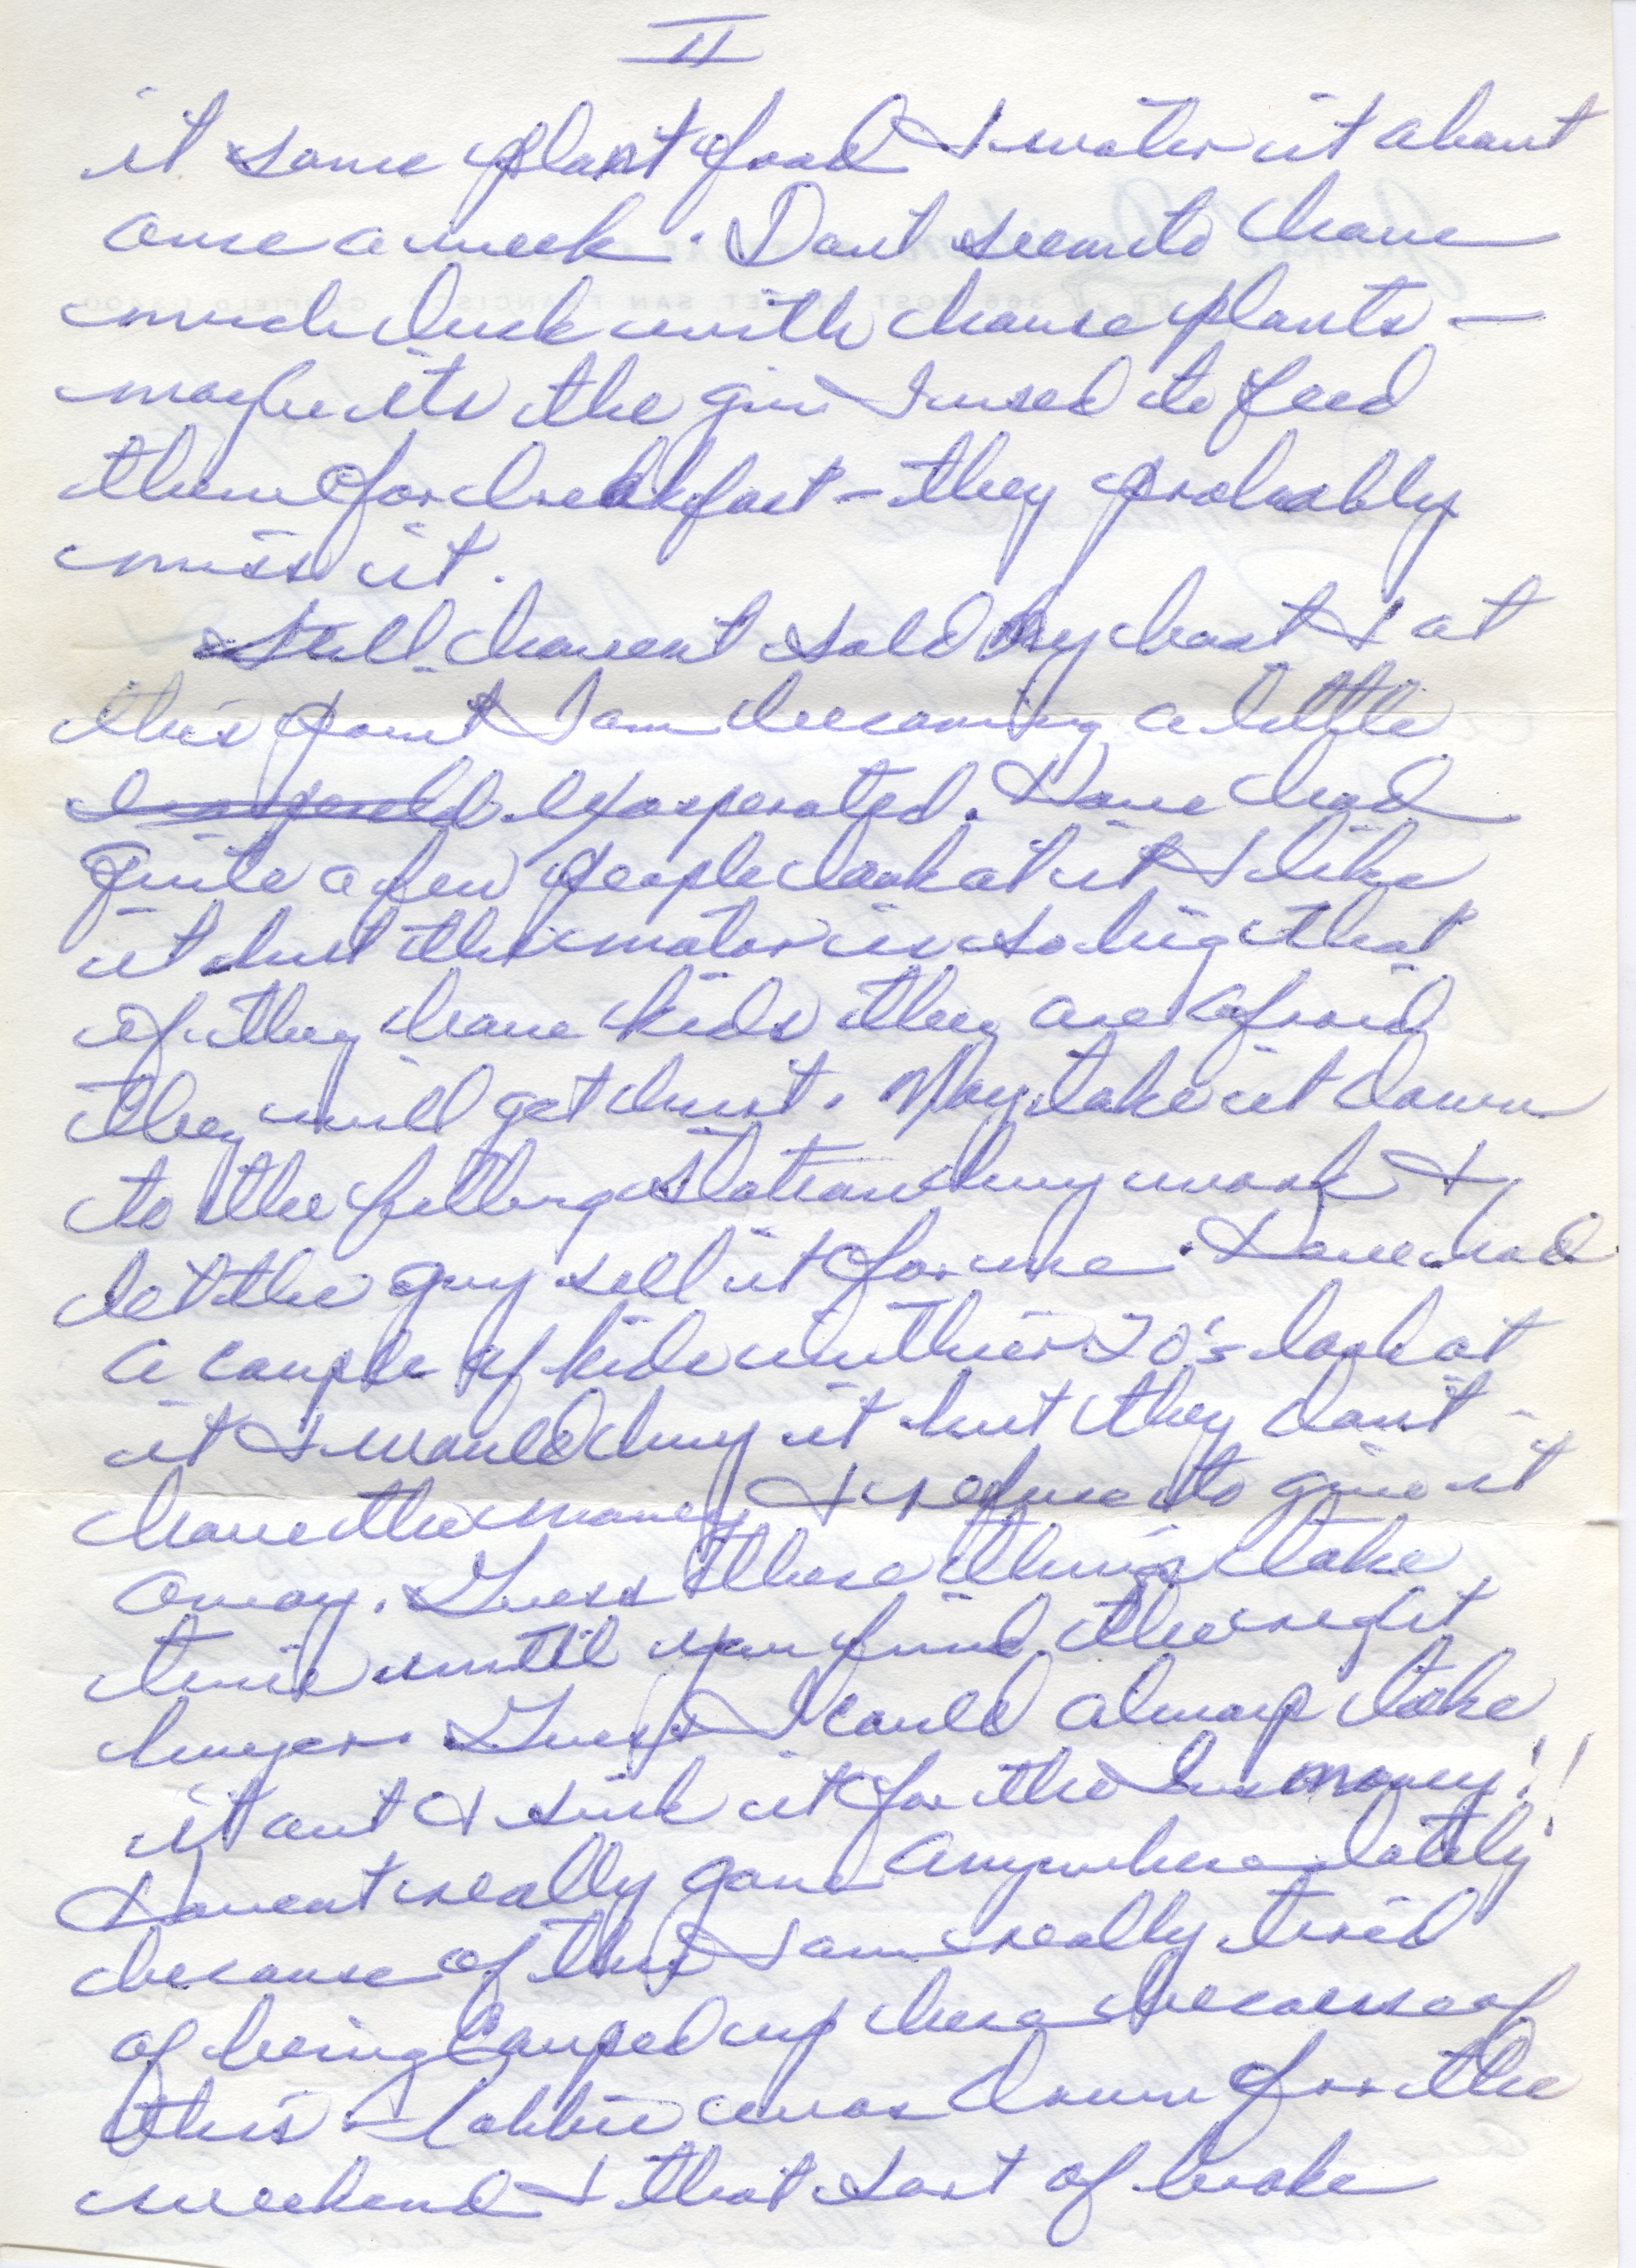 II
it some plant food & water it about
once a week. Dont seem to have
much luck with house plants –
maybe its the gin I used to feed
them for breakfast – they probably
miss it.
Still havent sold my boat & at
this point I am becoming a little
exasperated. Have had
quite a few people look at it & like
it but the motor is so big that
if they have kids they are afraid
they will get hurt. May take it down
to the filling station by my work &
let the guy sell it for me. Have had
a couple of kids in thier 20's look at
it & would buy it but they dont
have the money & I refuse to give it
away. Guess these things take
time until you find the right
buyer. Guess I could always take
it out & sink it for the Ins money!!
Havent really gone anywhere lately
because of this & am really tired
of being couped up here because of
this – Bobbie was down for the
weekend & that sort of broke